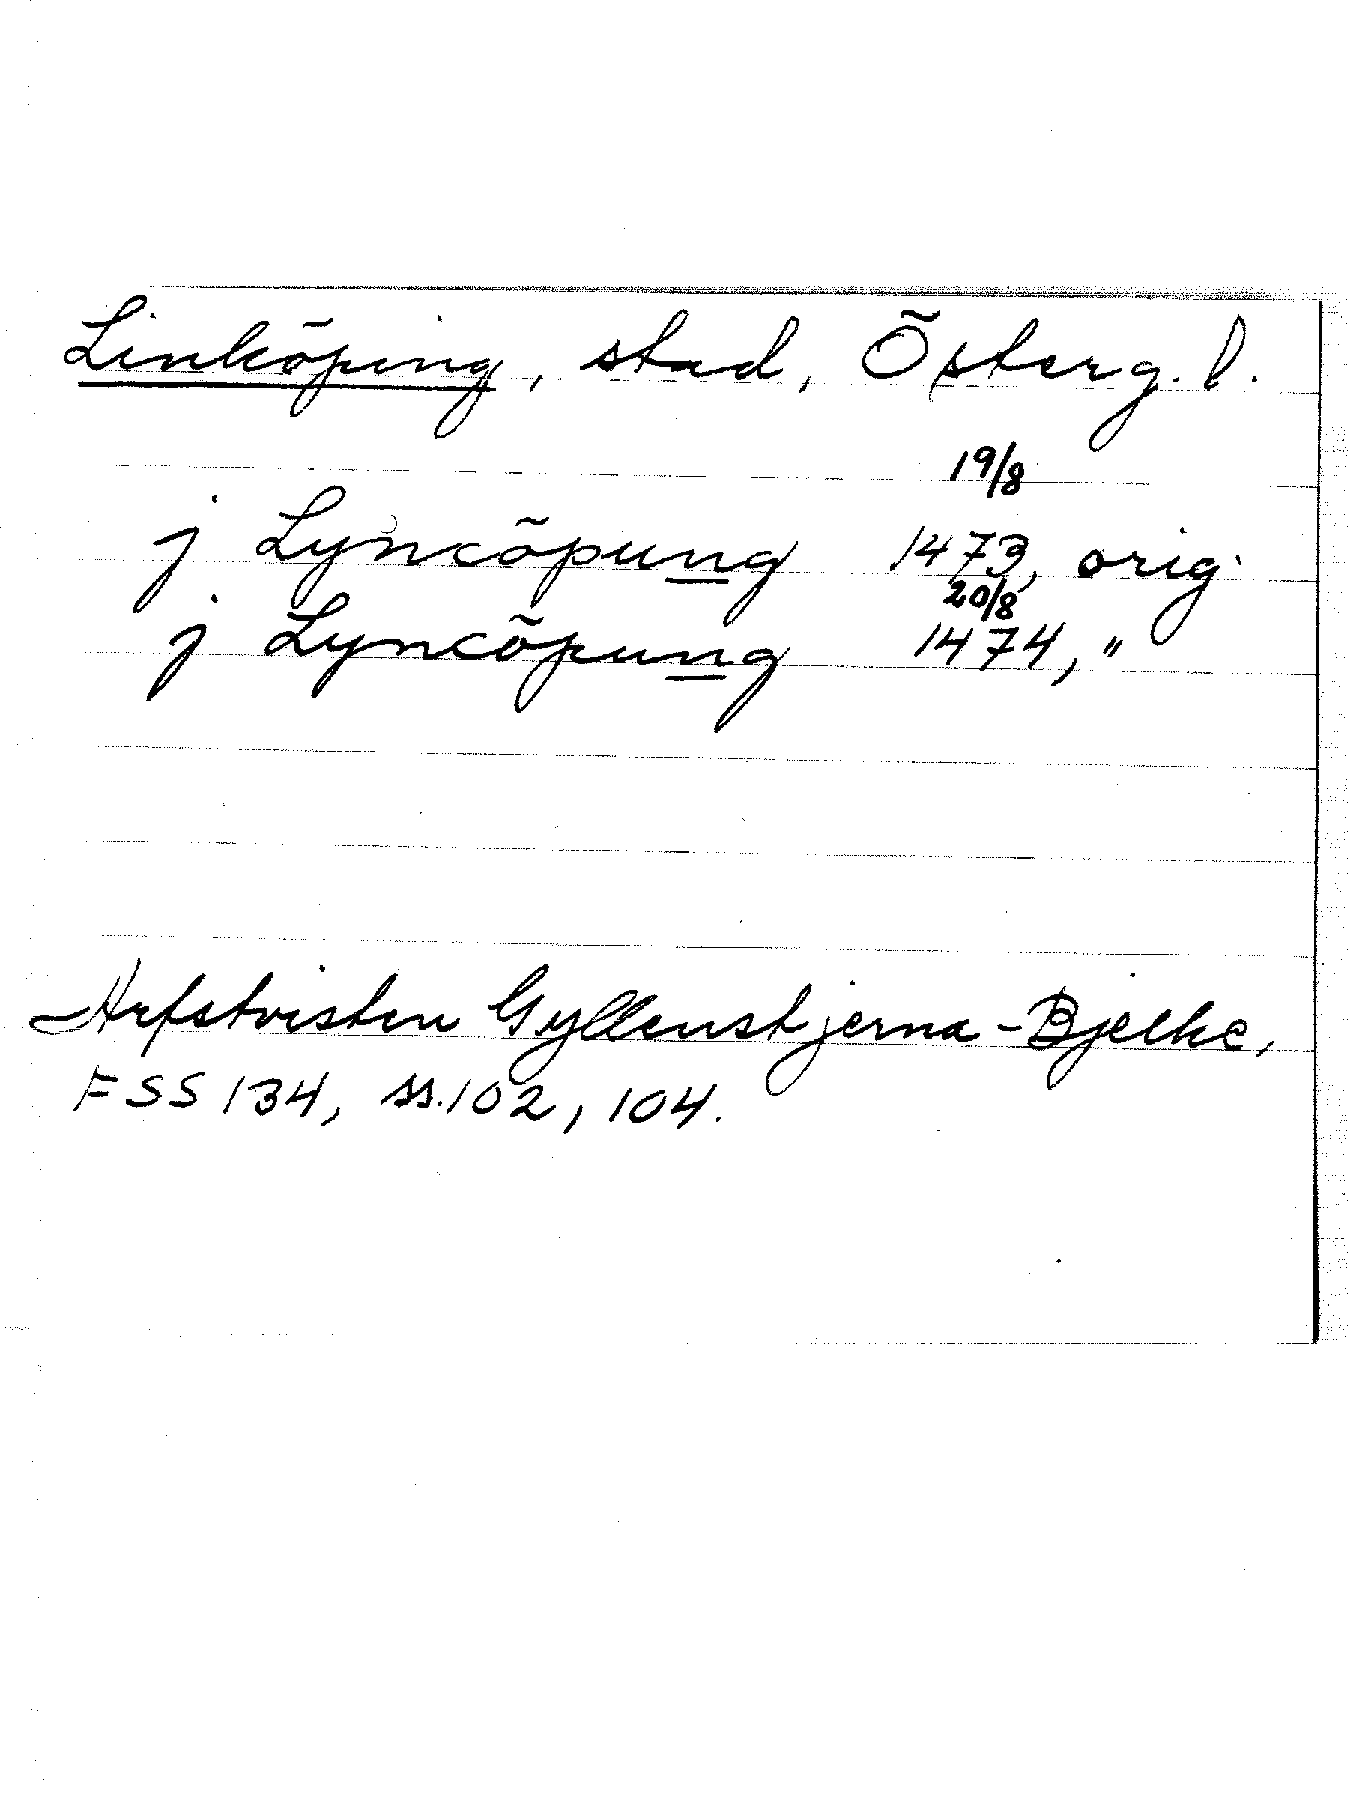 Linköping, stad, Österg. l.
19/8
j Lyncöpung 1473, orig.
20/8
j Lyncöpung 1474, "
Arfstvisten Gyllenstjerna-Bjelke,
FSS 134, ss. 102, 104.